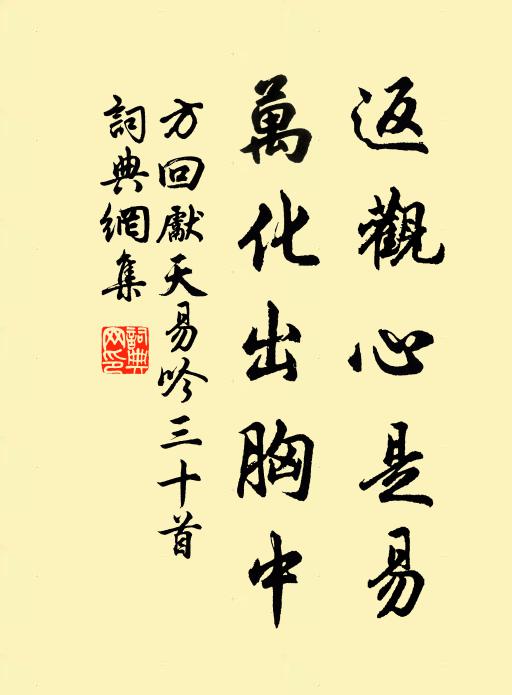 返觀心是易
萬化出胸中
方回獻天易吟三十首
詞典網集
詞典網印